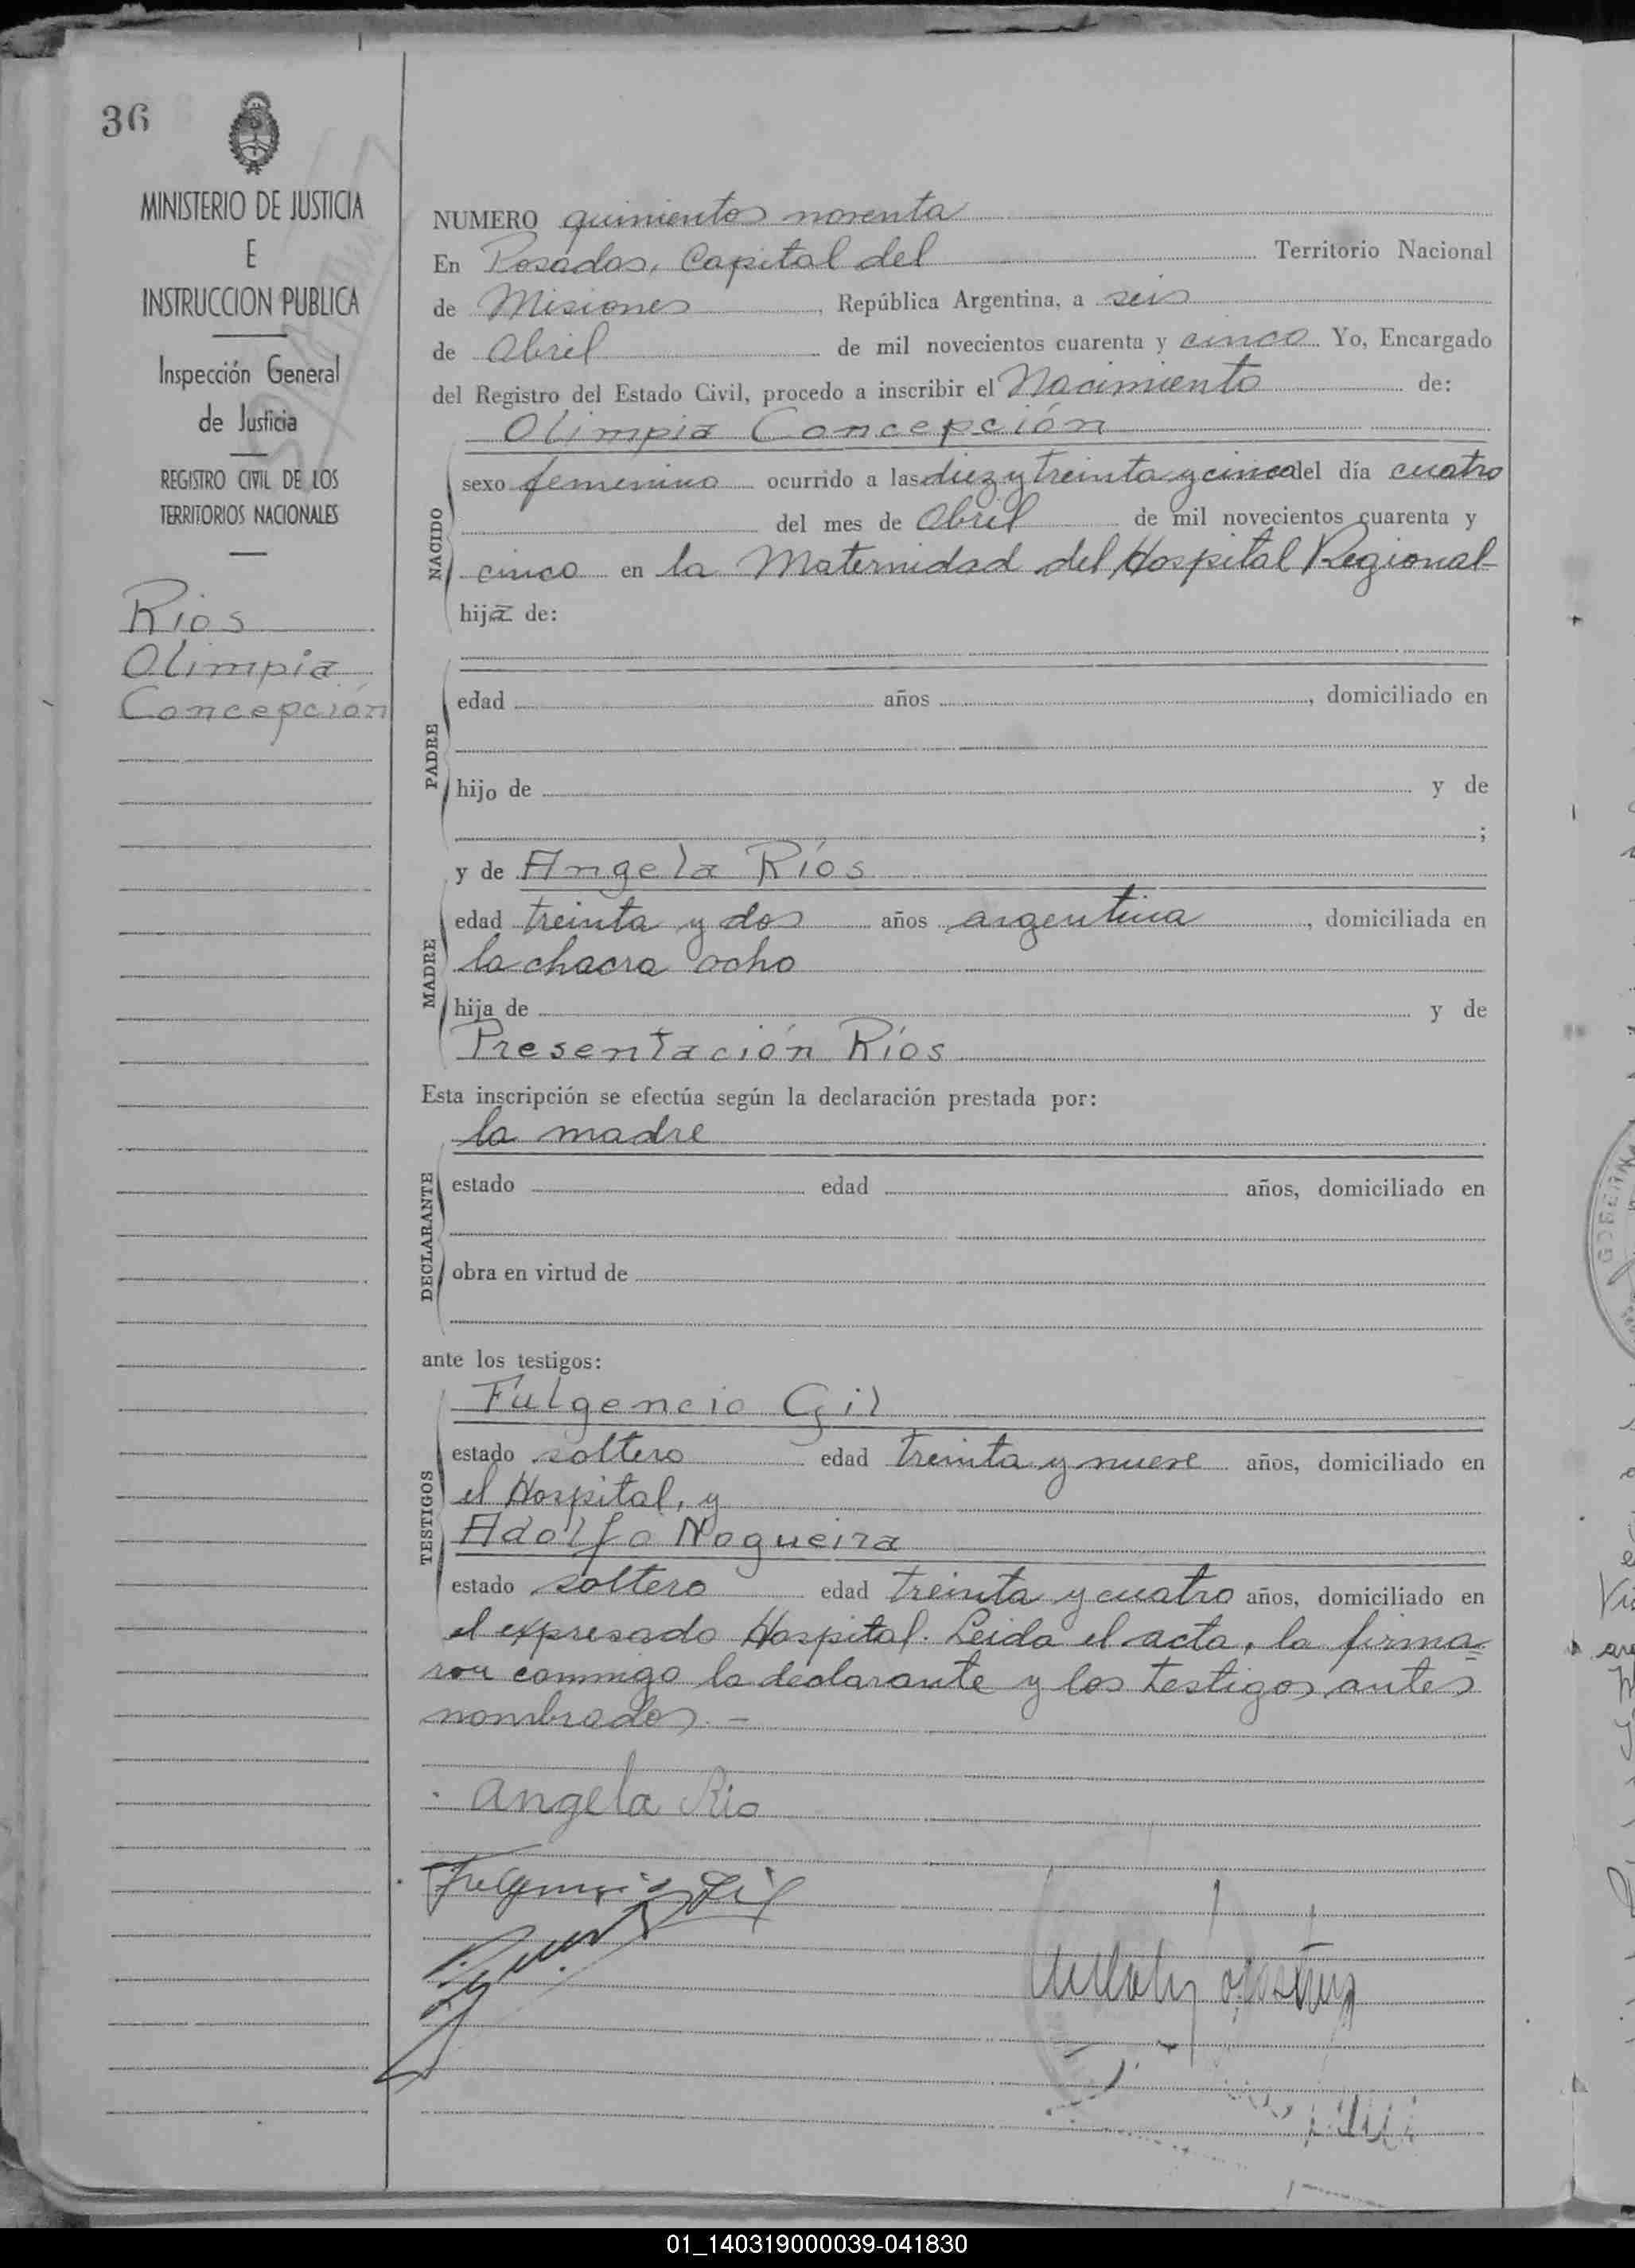 36
MINISTERIO DE JUSTICIA
E
INSTRUCCION PUBLICA
Inspección General
de Justicia
REGISTRO CIVIL DE LOS
TERRITORIOS NACIONALES
Rios
Olimpia
Concepción
NUMERO quinientos noventa
En Posadas, Capital del Territorio Nacional
de Misiones, República Argentina, a seis
de Abril de mil novecientos cuarenta y cinco Yo, Encargado
del Registro del Estado Civil, procedo a inscribir el Nacimiento de:
Olimpia Concepción
NACIDO
sexo femenino ocurrido a las diez y treinta y cinco del día cuatro
del mes de Abril de mil novecientos cuarenta y
cinco en la Maternidad del Hospital Regional-
hija de:
PADRE
edad años , domiciliado en
hijo de y de
;
MADRE
y de Angela Ríos
edad treinta y dos años argentina, domiciliada en
la chacra ocho
hija de y de
Presentación Ríos
Esta inscripción se efectúa según la declaración prestada por:
la madre
DECLARANTE
estado edad años, domiciliado en
obra en virtud de
ante los testigos:
TESTIGOS
Fulgencio Gil
estado soltero edad treinta y nueve años, domiciliado en
el Hospital, y
Adolfo Nogueira
estado soltero edad treinta y cuatro años, domiciliado en
el expresado Hospital. Leida el acta, la firma=
ron conmigo la declarante y los testigos antes
nombrados.-
Angela Rio
Fulgencio Gil
01_140319000039-041830